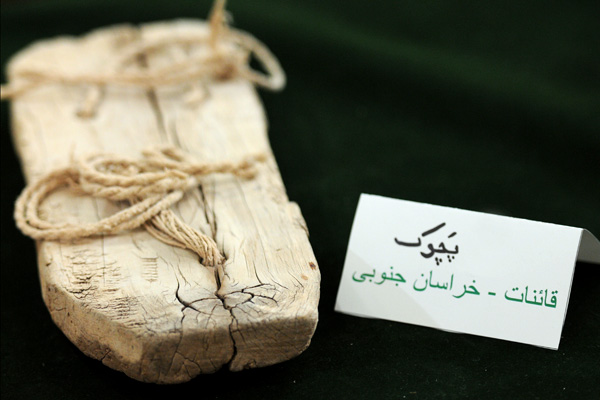 پَچوک
قائنات - خراسان جنوبی